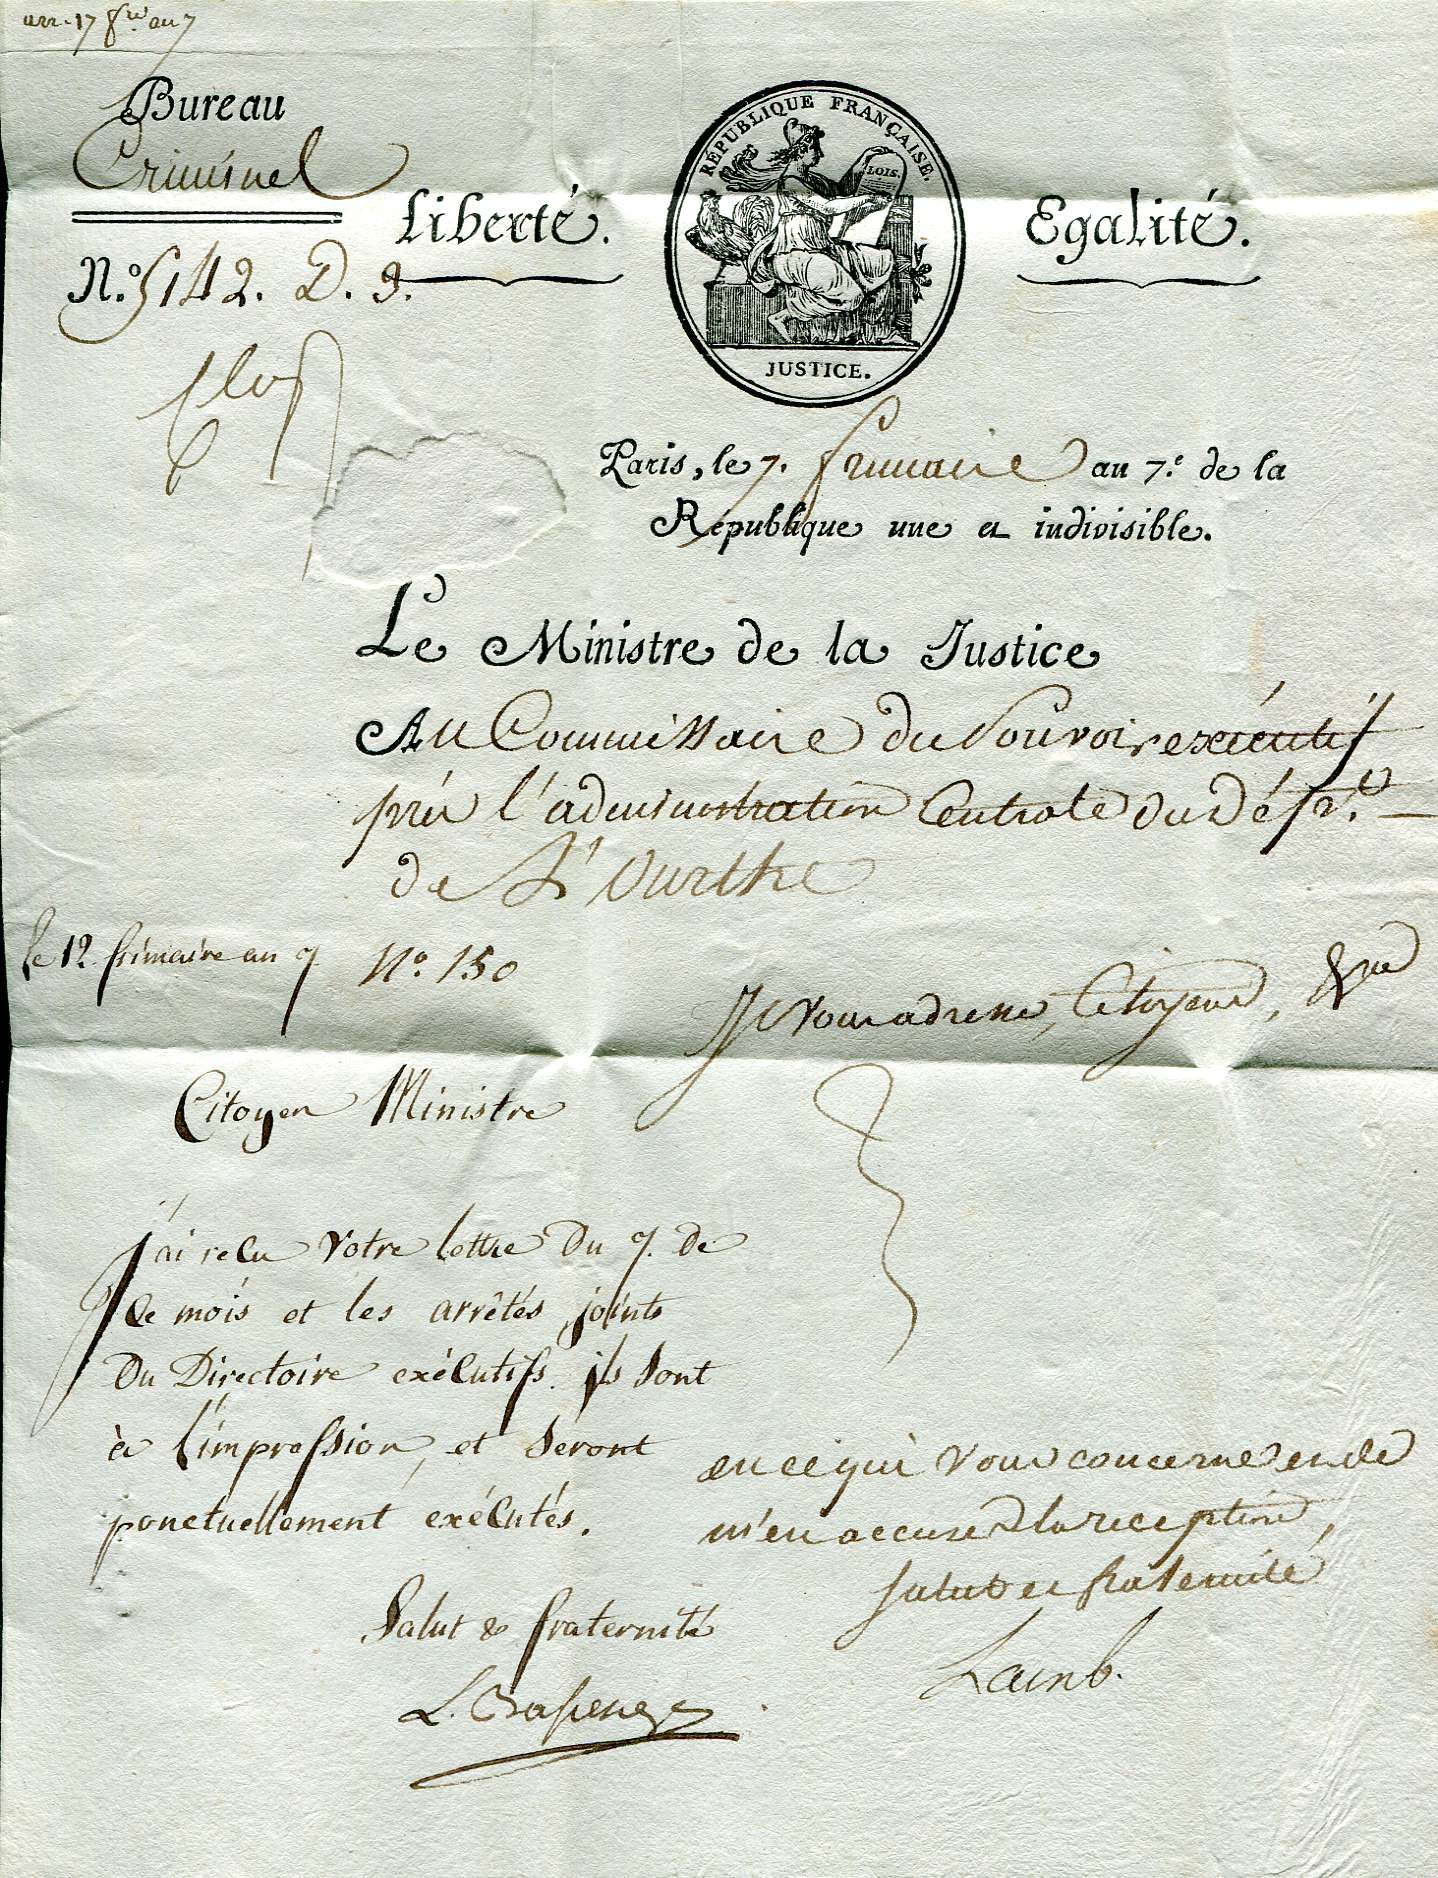 arr. 17 fre. an 7
Bureau
Criminel
N.º 5142. D. 9.
Liberté.
RÉPUBLIQUE FRANÇAISE.
LOIS.
JUSTICE.
Egalité.
Paris, le 7. frimaire an 7.e de la
République une et indivisible.
Le Ministre de la Justice
Au Commissaire du Pouvoir exécutif
près l'administration Centrale du Dép.t
de L'Ourthe
le 12 frimaire an 7 Nº 150
Je vous adresse, Citoyen,
Citoyen Ministre
J'ai reçu votre lettre du 7. de
ce mois et les arrêtés joints
du Directoire exécutif. ils sont
à l'impression, et seront
ponctuellement exécutés.
Salut & fraternité
en ce qui vous concerne et de
m'en accuser la reception,
Salut et fraternité
Lamb.